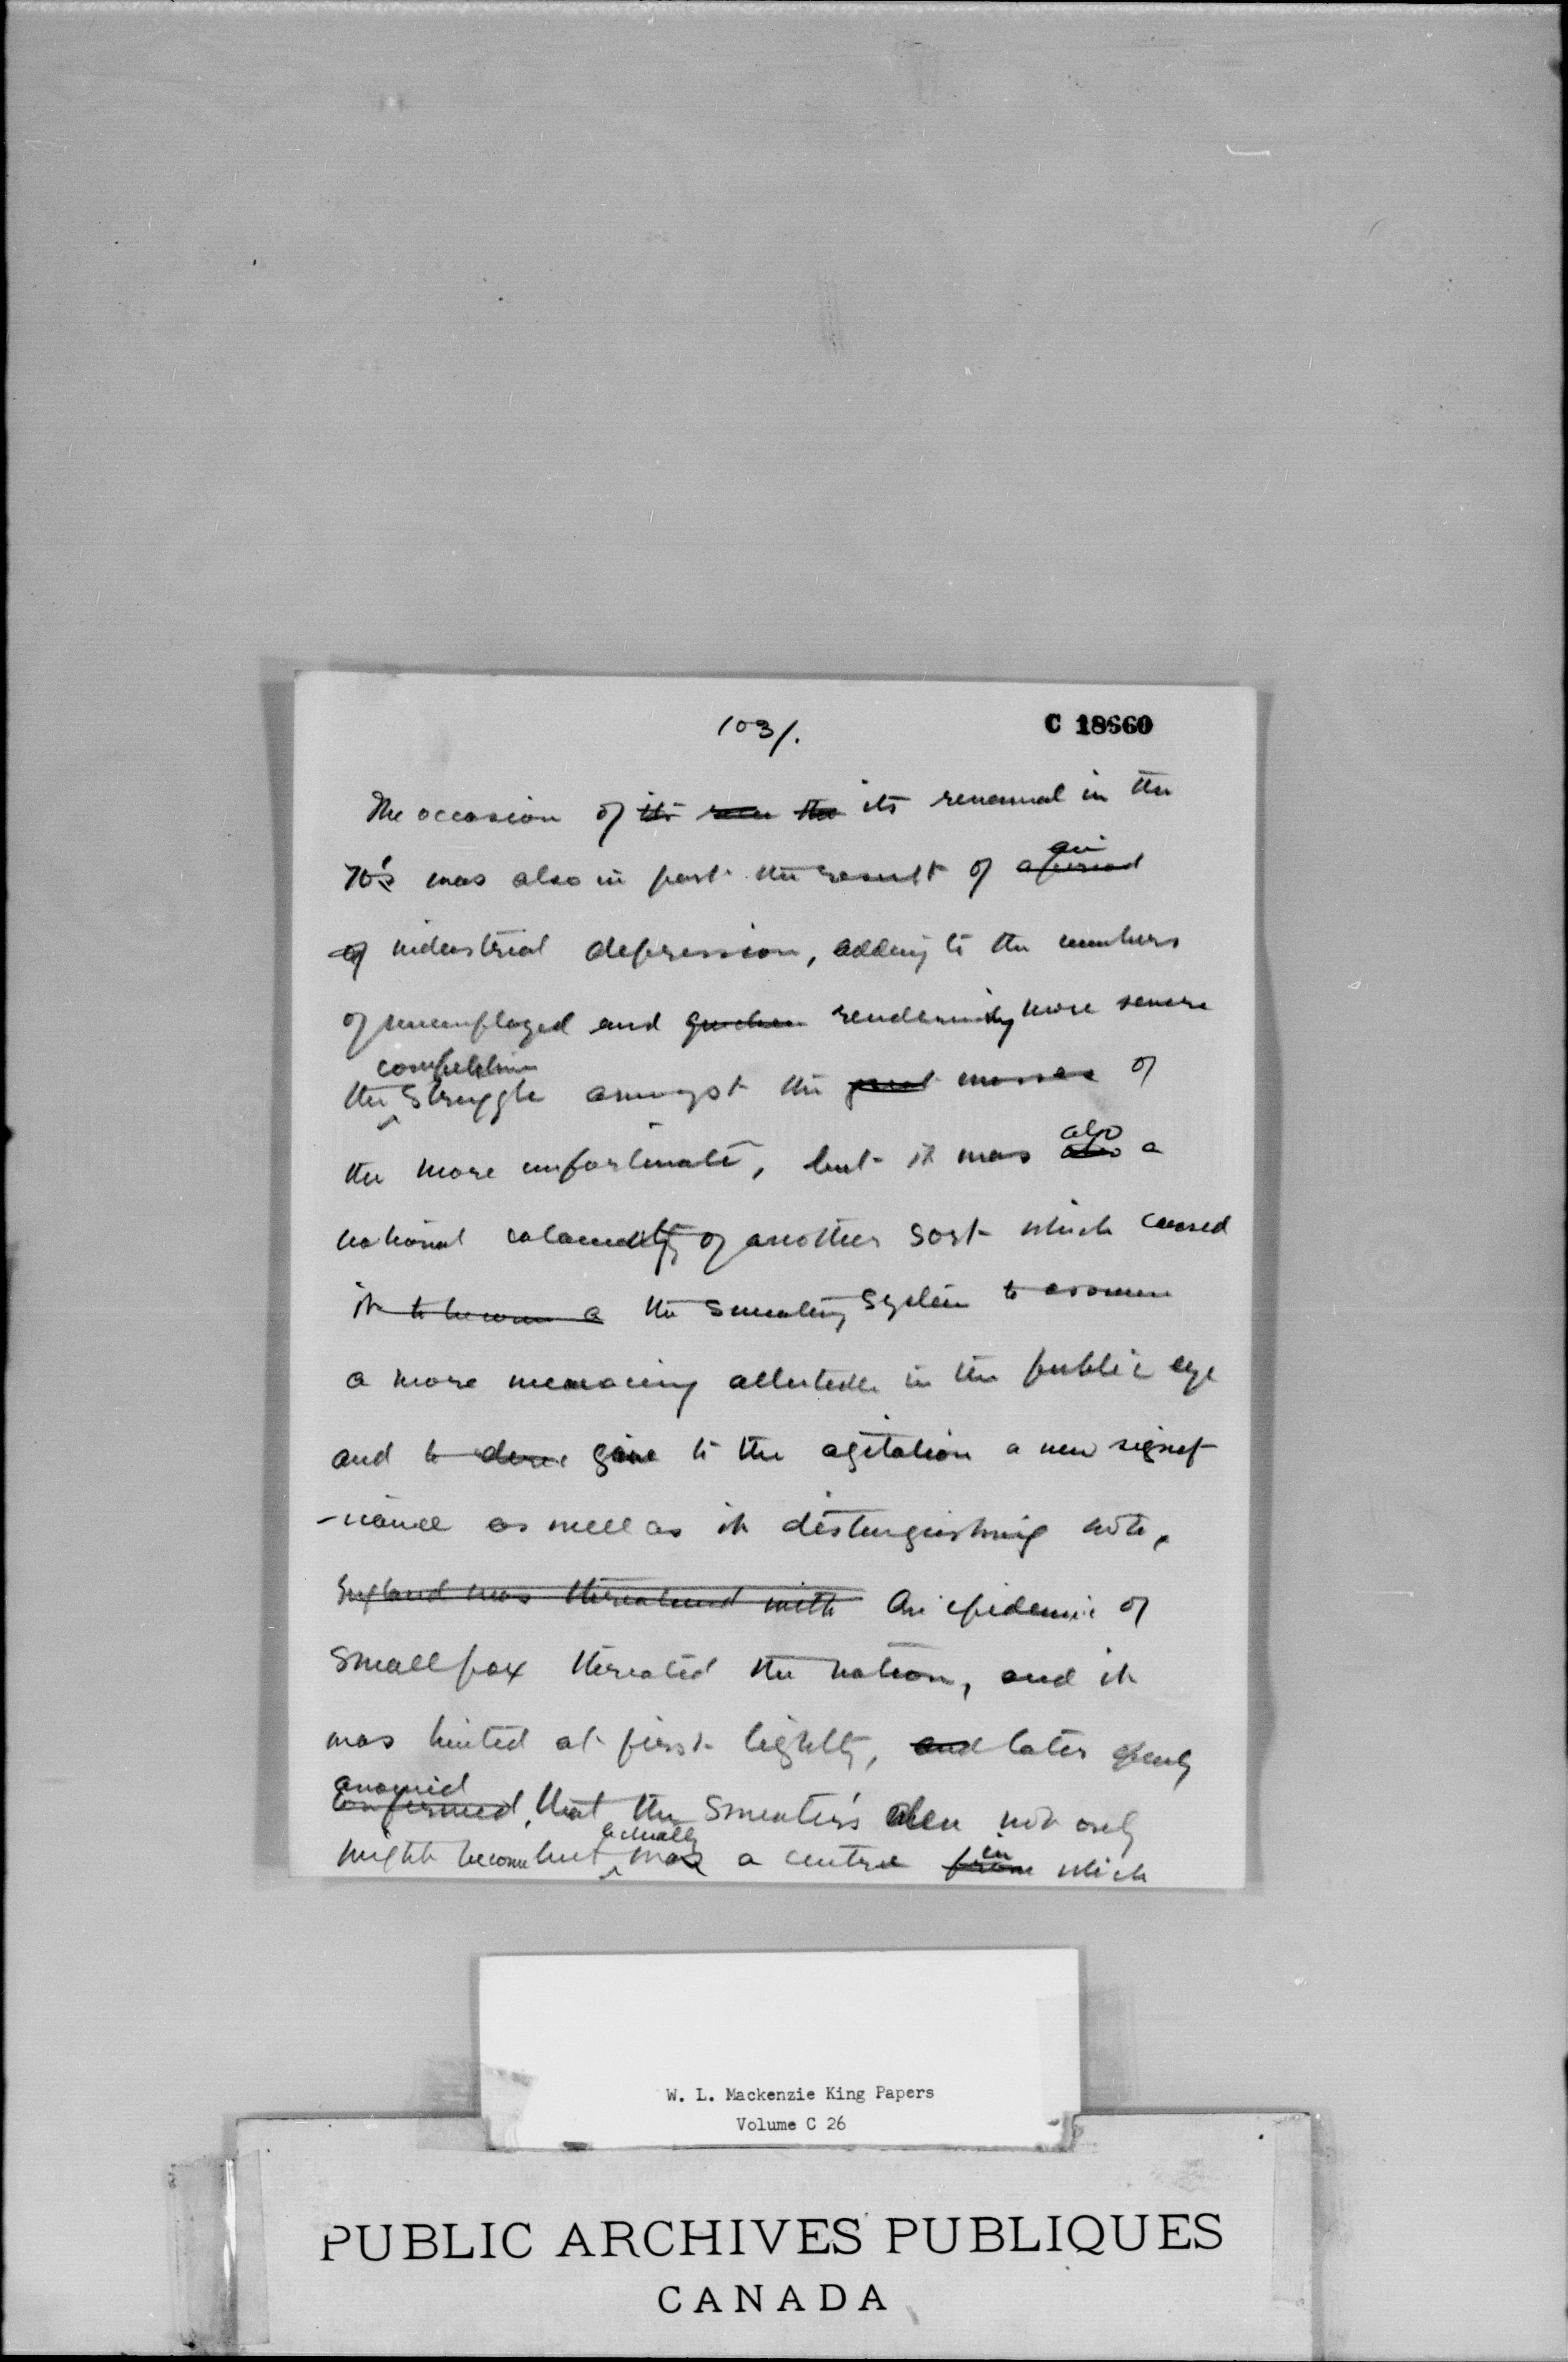 103/.
C 18660
The occasion of its its renewal in the
70's was also in part the result of a period an
of industrial depression, adding to the numbers
of unemployed and rendering more severe
competitive
the struggle amongst the great masses of
also
the more unfortunate, but it was also a
national calamity of another sort which caused
it to become a the sweating system to assume
a more menacing attitude in the public eye
and to give to the agitation a new signif
-icance as well as its distinguishing note.
England was threatened with An epidemic of
Smallpox threated the nation, and it
was hinted at first lightly, and later openly
confirmed, that the Sweater's den not only
actually in
might become but was a centre from which
W. L. Mackenzie King Papers
Volume C 26
PUBLIC ARCHIVES PUBLIQUES
CANADA